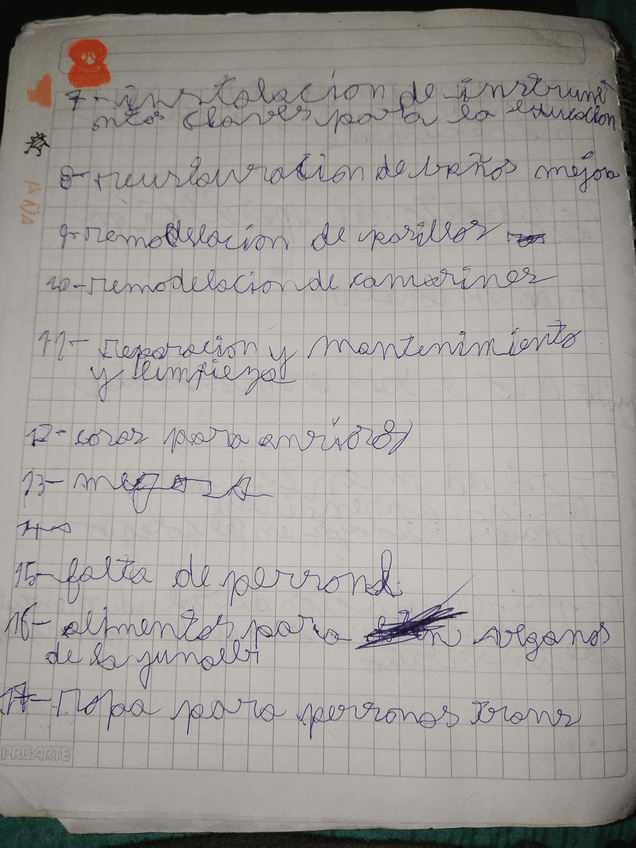 7- instalacion de instrume
ntos claves para la educacion
8- restauracion de baños mejora
9- remodelacion de pasillos
10- remodelacion de camarines
11- reparacion y mantenimiento
y limpieza
12- cosas para
13-
14-
15- falta de personal
16- alimentos para veganos
de la junaeb
17- Ropa para personas trans
PROARTE
ANA